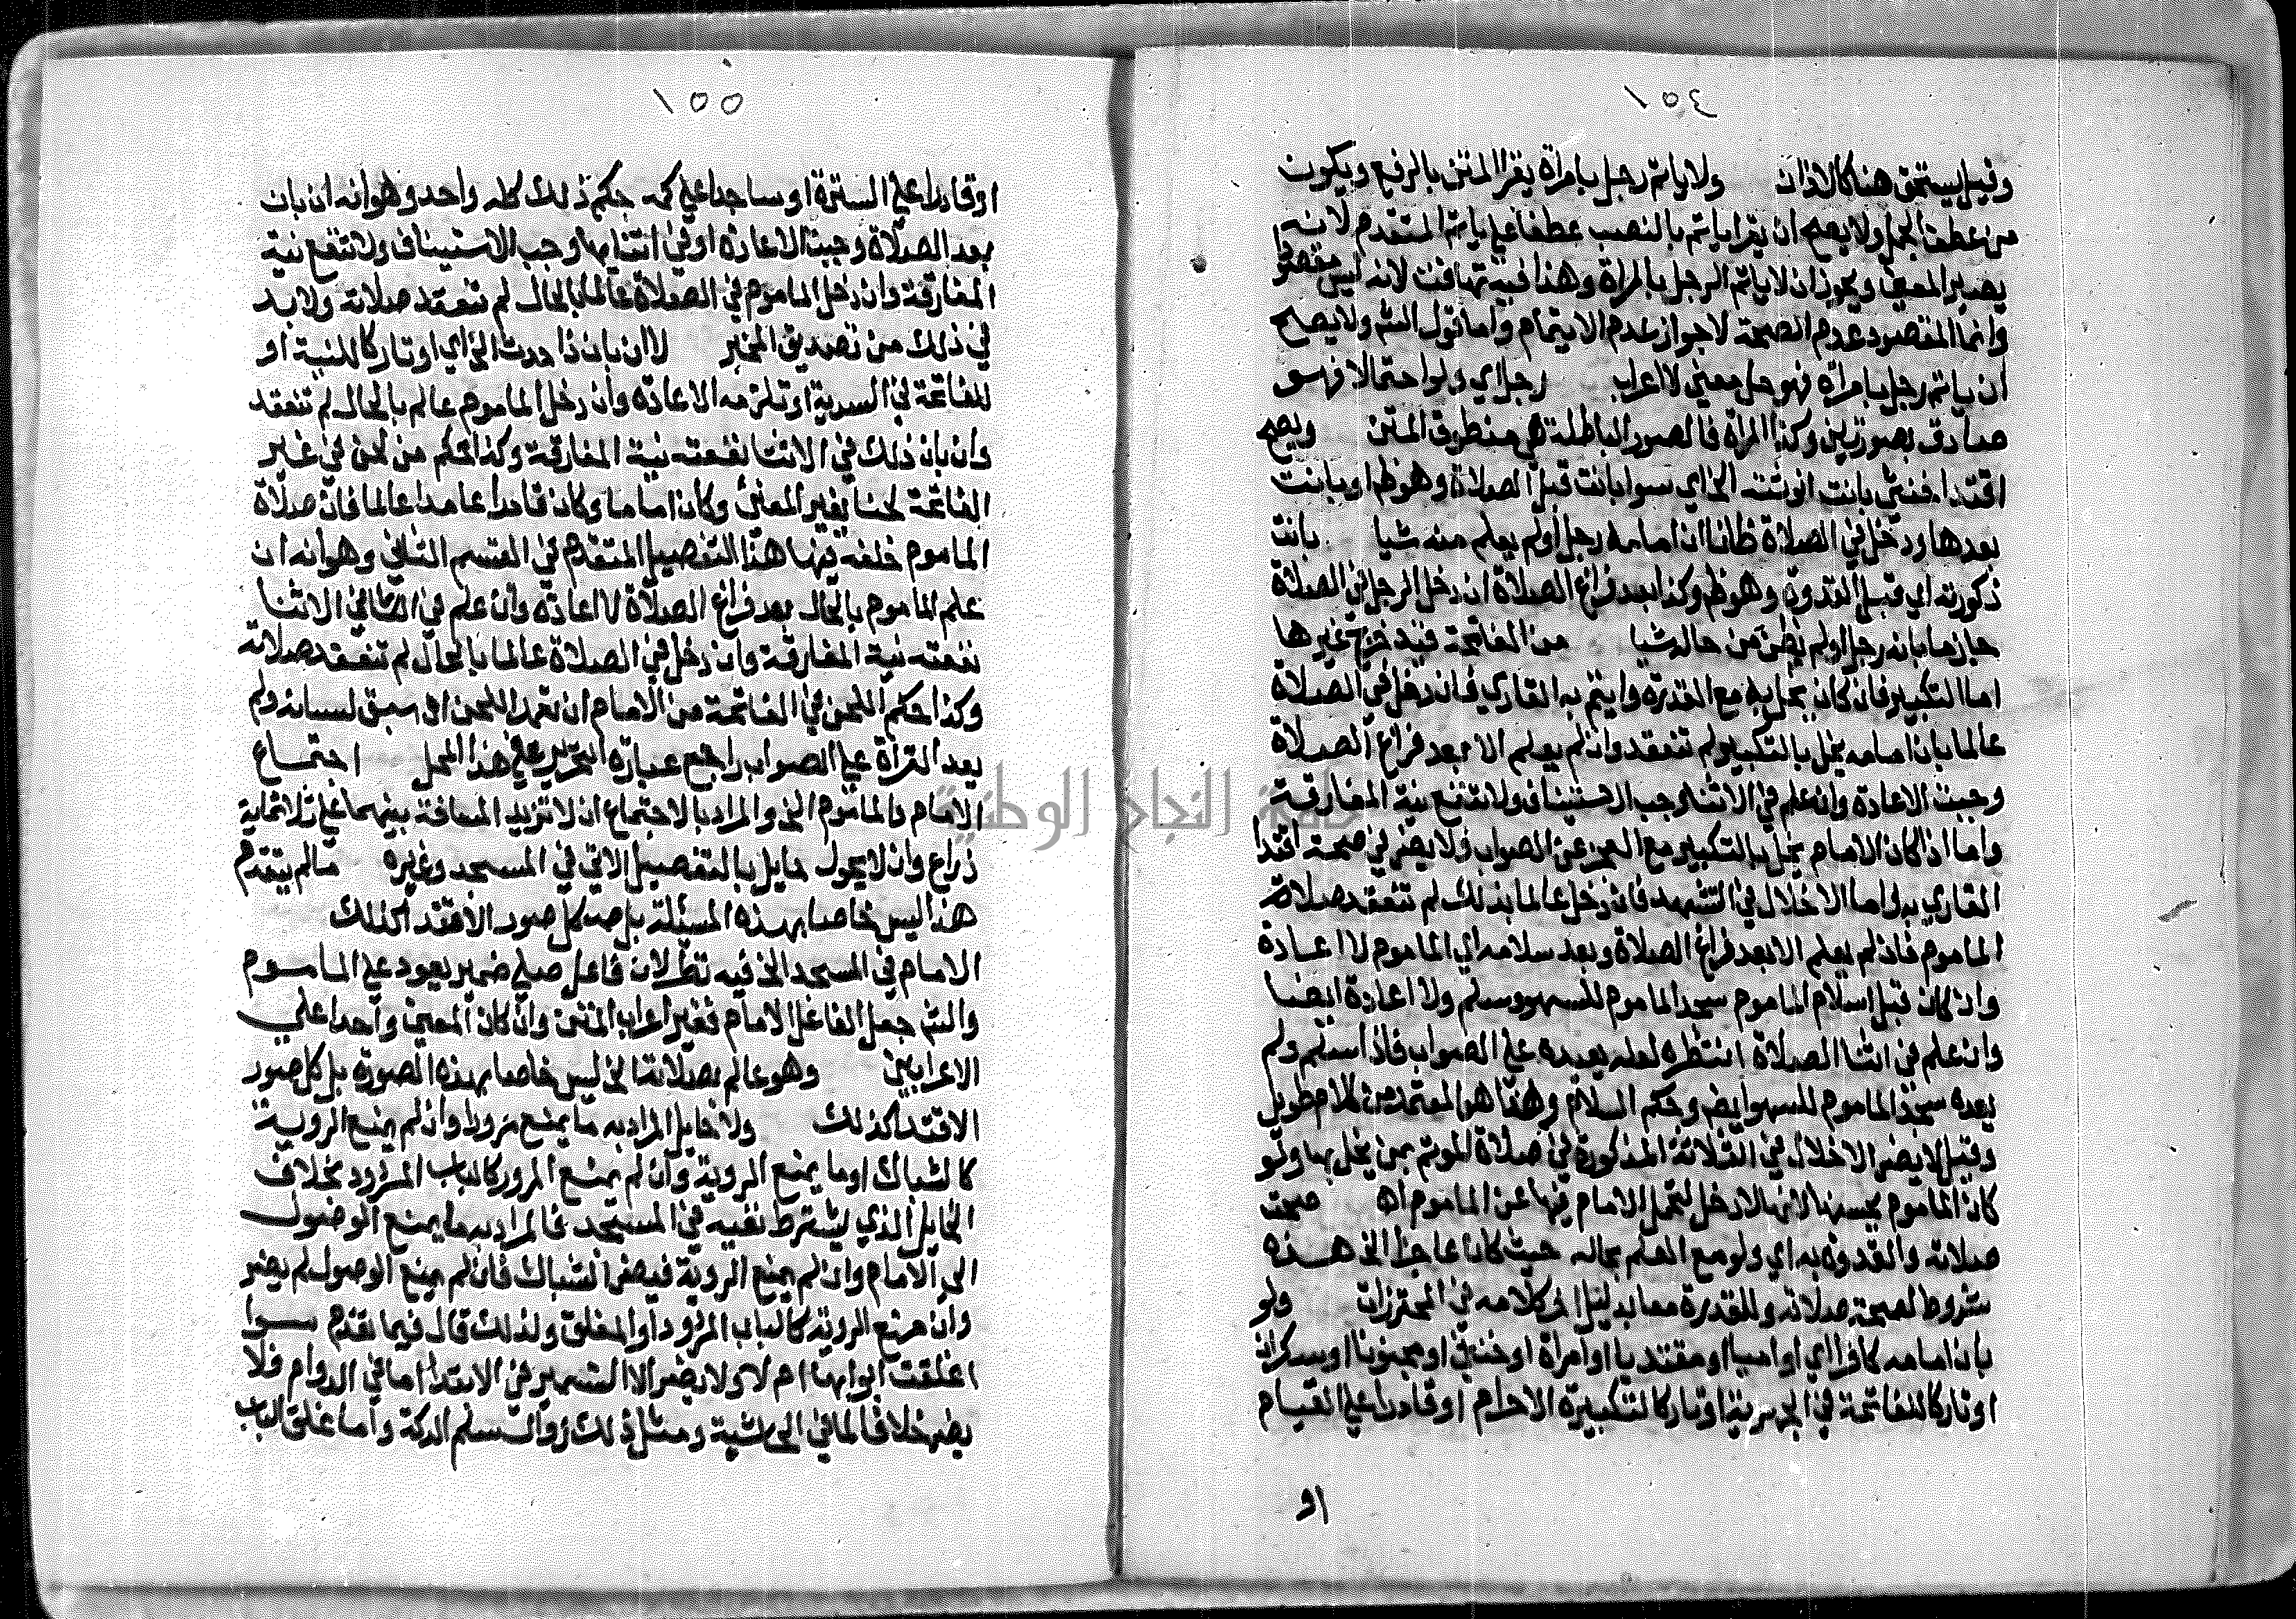 ١٥٤
وقيل يستحق هنا كالاذان ولا ياتم رجل بامراة يقرا المتن بالرفع ويكون
من عطف الجمل ولا يصح ان يقرا ياتم بالنصب عطفا على ياتم المتقدم لانه
يصير المعنى ويجوز ان لا ياتم الرجل بالمراة وهذا فيه تهافت لانه ليس مقصودا
وانما المقصود عدم الصحة لا جواز عدم الايتمام واما قول الشم ولا يصح
ان ياتم رجل بامراة فهو حل معنى لا اعراب رجل اي ولو احتمالا فهو
صادق بصورتين وكذا المراة فالصور الباطلة هي منطوق المتن ويصح
اقتدا خنثى بانت انوثته الخ اي سوا بانت قبل الصلاة وهو ظم او بانت
بعدها ودخل في الصلاة ظانا ان امامه رجل اولم يعلم منه شيا بانت
ذكورته اي قبل القدوة وهو ظم وكذا بعد فراغ الصلاة ان دخل الرجل في الصلاة
جازما بانه رجل اولم يظن من حاله شيا من الفاتحة قيد خرج غيرها
اما التكبير فان كان يخل به مع القدرة وايتم به القاري فان دخل في الصلاة
عالما بان امامه يخل بالتكبير لم تنعقد وان لم يعلم الا بعد فراغ الصلاة
وجبت الاعادة وان علم في الاثنا وجب الاستيناف ولا تنفع نية المفارقة
واما اذا كان الامام يخل بالتكبير مع العجز عن الصواب ولا يضر في صحة اقتدا
القاري به واما الاخلال في التشهد فان دخل عالما بذلك لم تنعقد صلاة
الماموم فان لم يعلم الا بعد فراغ الصلاة وبعد سلامه اي الماموم لا اعادة
وان كان قبل سلام الماموم سجد الماموم للسهو وسلم ولا اعادة ايضا
وان علم في اثنا الصلاة انتظره لعله يعيده على الصواب فاذا سلم ولم
يعده سجد الماموم للسهو ايضم وحكم السلام وهذا هو المعتمد من كلام طويل
وقيل لا يضر الاخلال في الثلاثة المذكورة في صلاة الموتم بمن يخل بها ولو
كان الماموم يحسنها لانها لا دخل لتحمل الامام فيها عن الماموم اه صحت
صلاته والقدوة به اي ولو مع العلم بحاله حيث كان عاجزا الخ هذه
شروط لصحة صلاته وللقدرة معا بدليل الخ كلامه في المحترزات ولو
بان امامه كافرا اي او اميا او مقتديا او امراة او خنثى او مجنونا او سكران
او تاركا للفاتحة في الجهرية او تاركا لتكبيرة الاحرام او قادرا على القيام
او
١٥٥
او قادرا على السترة او ساجدا على كمه حكم ذلك كله واحد وهو انه ان بان
بعد الصلاة وجبت الاعادة او في اثنائها وجب الاستيناف ولا تنفع نية
المفارقة وان دخل الماموم في الصلاة عالما بالحال لم تنعقد صلاته ولا بد
في ذلك من تصديق المخبر لا ان بان ذا حدث الخ اي او تاركا للنية او
للفاتحة في السرية او تلزمه الاعادة وان دخل الماموم عالم بالحال لم تنعقد
وان بان ذلك في الاثنا نفعته نية المفارقة وكذا الحكم من لحن في غير
الفاتحة لحنا يغير المعنى وكان اماما وكان قادرا عامدا عالما فان صلاة
الماموم خلفه فيها هذا التفصيل المتقدم في القسم الثاني وهو انه ان
علم الماموم بالحال بعد فراغ الصلاة لا اعادة وان علم في الثاني الاثنا
نفعته نية المفارقة وان دخل في الصلاة عالما بالحال لم تنعقد صلاته
وكذا حكم اللحن في الفاتحة من الامام ان تعمد اللحن او سبق لسانه ولم
يعد القراة على الصواب راجع عبارة التحرير على هذا المحل اجتماع
الامام والماموم الخ والمراد بالاجتماع ان لا تزيد المسافة بينهما على ثلاثماية
ذراع وان لا يحول حايل بالتفصيل الاتي في المسجد وغيره ما لم يتقدم
هذا ليس خاصا بهذه المسئلة بل صه كل صور الاقتدا كذلك
الامام في المسجد الخ فيه نظر لان فاعل صلى ضمير يعود على الماموم
والشم جعل الفاعل الامام فغير اعراب المتن وان كان المعنى واحدا على
الاعرابين وهو عالم بصلاته الخ ليس خاصا بهذه الصورة بل كل صور
الاقتدا كذلك ولا حايل المراد به ما يمنع مرورا وان لم يمنع الروية
كالشباك او ما يمنع الروية وان لم يمنع المرور كالباب المردود بخلاف
الحايل الذي يشترط نفيه في المسجد فالمراد به ما يمنع الوصول
الى الامام وان لم يمنع الروية فيضر الشباك فان لم يمنع الوصول لم يضر
وان منع الروية كالباب المردود او المغلق ولذلك قال فيما تقدم سوا
اغلقت ابوابها ام لا ولا يضر الا التسمير في الابتدا اما في الدوام فلا
يضر خلافا لما في الحاشية ومثل ذلك زوال سلم الدكة واما غلق الباب
جامعة النجاح الوطنية